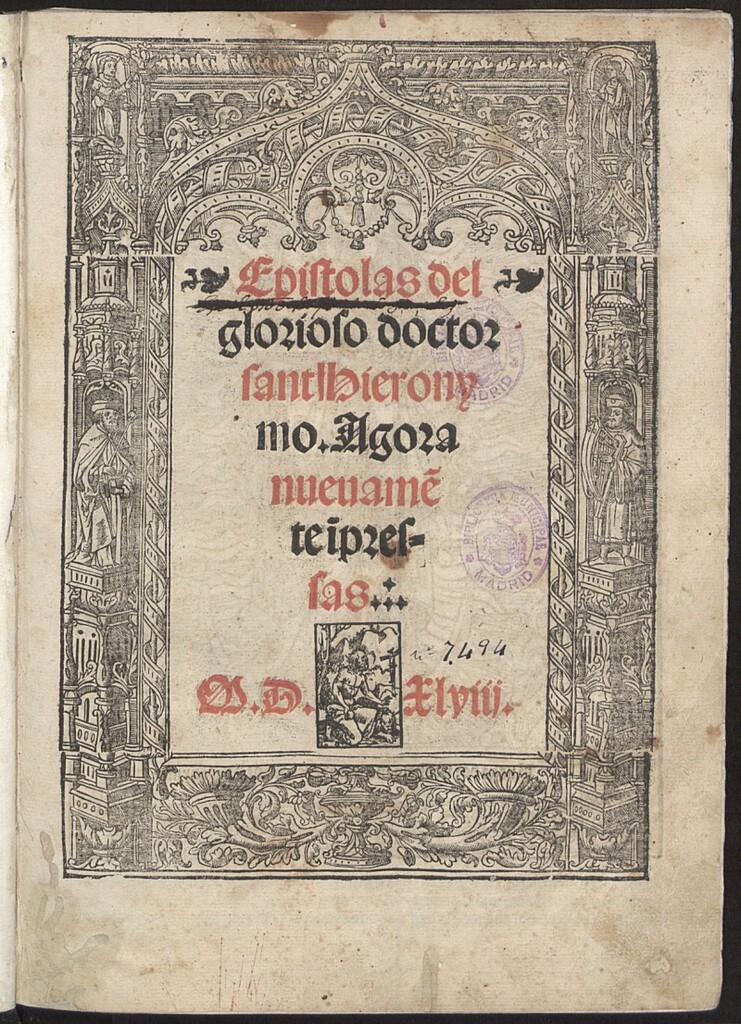 Epistolas del
glorioso doctor
sant Hierony
mo. Agora
nueuamē
te īpres-
sas
M.D. Xlviij.
nº 7.494
BIBLIOTECA MUNICIPAL
MADRID
MADRID